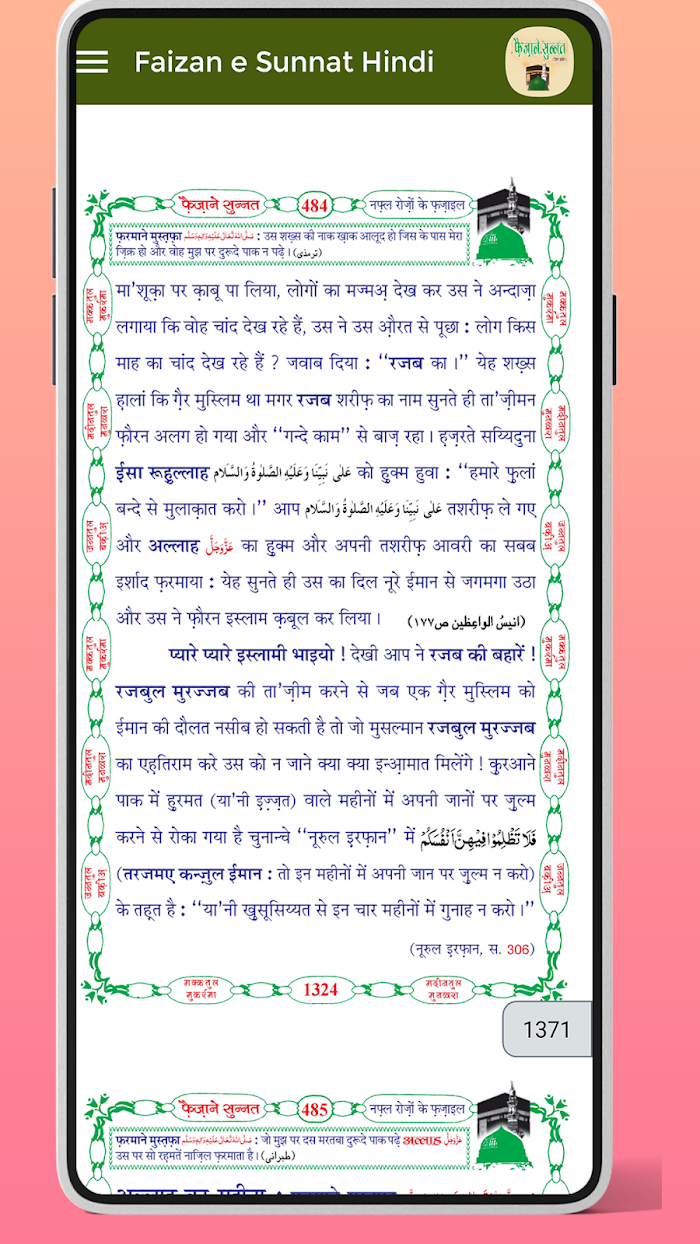 Faizan e Sunnat Hindi
फ़ैज़ाने सुन्नत
फ़ैज़ाने सुन्नत
484
नफ़्ल रोज़ों के फ़ज़ाइल
फ़रमाने मुस्तफ़ा صَلَّى اللهُ تَعَالٰى عَلَيْهِ وَاٰلِهٖ وَسَلَّم : उस शख़्स की नाक ख़ाक आलूद हो जिस के पास मेरा
ज़िक्र हो और वोह मुझ पर दुरूदे पाक न पढ़े। (ترمذی)
मा'शूक़ा पर क़ाबू पा लिया, लोगों का मज्मअ़ देख कर उस ने अन्दाज़ा
लगाया कि वोह चांद देख रहे हैं, उस ने उस औ़रत से पूछा : लोग किस
माह का चांद देख रहे हैं ? जवाब दिया : ‘‘रजब का।’’ येह शख़्स
ह़ालां कि ग़ैर मुस्लिम था मगर रजब शरीफ़ का नाम सुनते ही ता'ज़ीमन
फ़ौरन अलग हो गया और ‘‘गन्दे काम’’ से बाज़ रहा। ह़ज़रते सय्यिदुना
ईसा रूह़ुल्लाह عَلٰى نَبِيِّنَا وَعَلَيْهِ الصَّلٰوةُ وَالسَّلَام को ह़ुक्म हुवा : ‘‘हमारे फ़ुलां
बन्दे से मुलाक़ात करो।’’ आप عَلٰى نَبِيِّنَا وَعَلَيْهِ الصَّلٰوةُ وَالسَّلَام तशरीफ़ ले गए
और अल्लाह عَزَّوَجَلَّ का ह़ुक्म और अपनी तशरीफ़ आवरी का सबब
इर्शाद फ़रमाया : येह सुनते ही उस का दिल नूरे ईमान से जगमगा उठा
और उस ने फ़ौरन इस्लाम क़बूल कर लिया। (انیسُ الواعِظین ص۱۷۷)
प्यारे प्यारे इस्लामी भाइयो ! देखी आप ने रजब की बहारें !
रजबुल मुरज्जब की ता'ज़ीम करने से जब एक ग़ैर मुस्लिम को
ईमान की दौलत नसीब हो सकती है तो जो मुसल्मान रजबुल मुरज्जब
का एह़तिराम करे उस को न जाने क्या क्या इन्आ़मात मिलेंगे ! क़ुरआने
पाक में ह़ुरमत (या'नी इ़ज़्ज़त) वाले महीनों में अपनी जानों पर ज़ुल्म
करने से रोका गया है चुनान्चे ‘‘नूरुल इ़रफ़ान’’ में فَلَا تَظْلِمُوْا فِیْهِنَّ اَنْفُسَكُمْ
(तरजमए कन्ज़ुल ईमान : तो इन महीनों में अपनी जान पर ज़ुल्म न करो)
के तह़्त है : ‘‘या'नी ख़ुसूसिय्यत से इन चार महीनों में गुनाह न करो।’’
(नूरुल इ़रफ़ान, स. 306)
मक्कतुल मुकर्रमा
मदीनतुल मुनव्वरा
जन्नतुल बक़ीअ़
मक्कतुल मुकर्रमा
मदीनतुल मुनव्वरा
जन्नतुल बक़ीअ़
मक्कतुल मुकर्रमा
मदीनतुल मुनव्वरा
जन्नतुल बक़ीअ़
मक्कतुल मुकर्रमा
मदीनतुल मुनव्वरा
जन्नतुल बक़ीअ़
मक्कतुल मुकर्रमा
1324
मदीनतुल मुनव्वरा
1371
फ़ैज़ाने सुन्नत
485
नफ़्ल रोज़ों के फ़ज़ाइल
फ़रमाने मुस्तफ़ा صَلَّى اللهُ تَعَالٰى عَلَيْهِ وَاٰلِهٖ وَسَلَّم : जो मुझ पर दस मरतबा दुरूदे पाक पढ़े अल्लाह عَزَّوَجَلَّ
उस पर सो रह़मतें नाज़िल फ़रमाता है। (طبرانی)